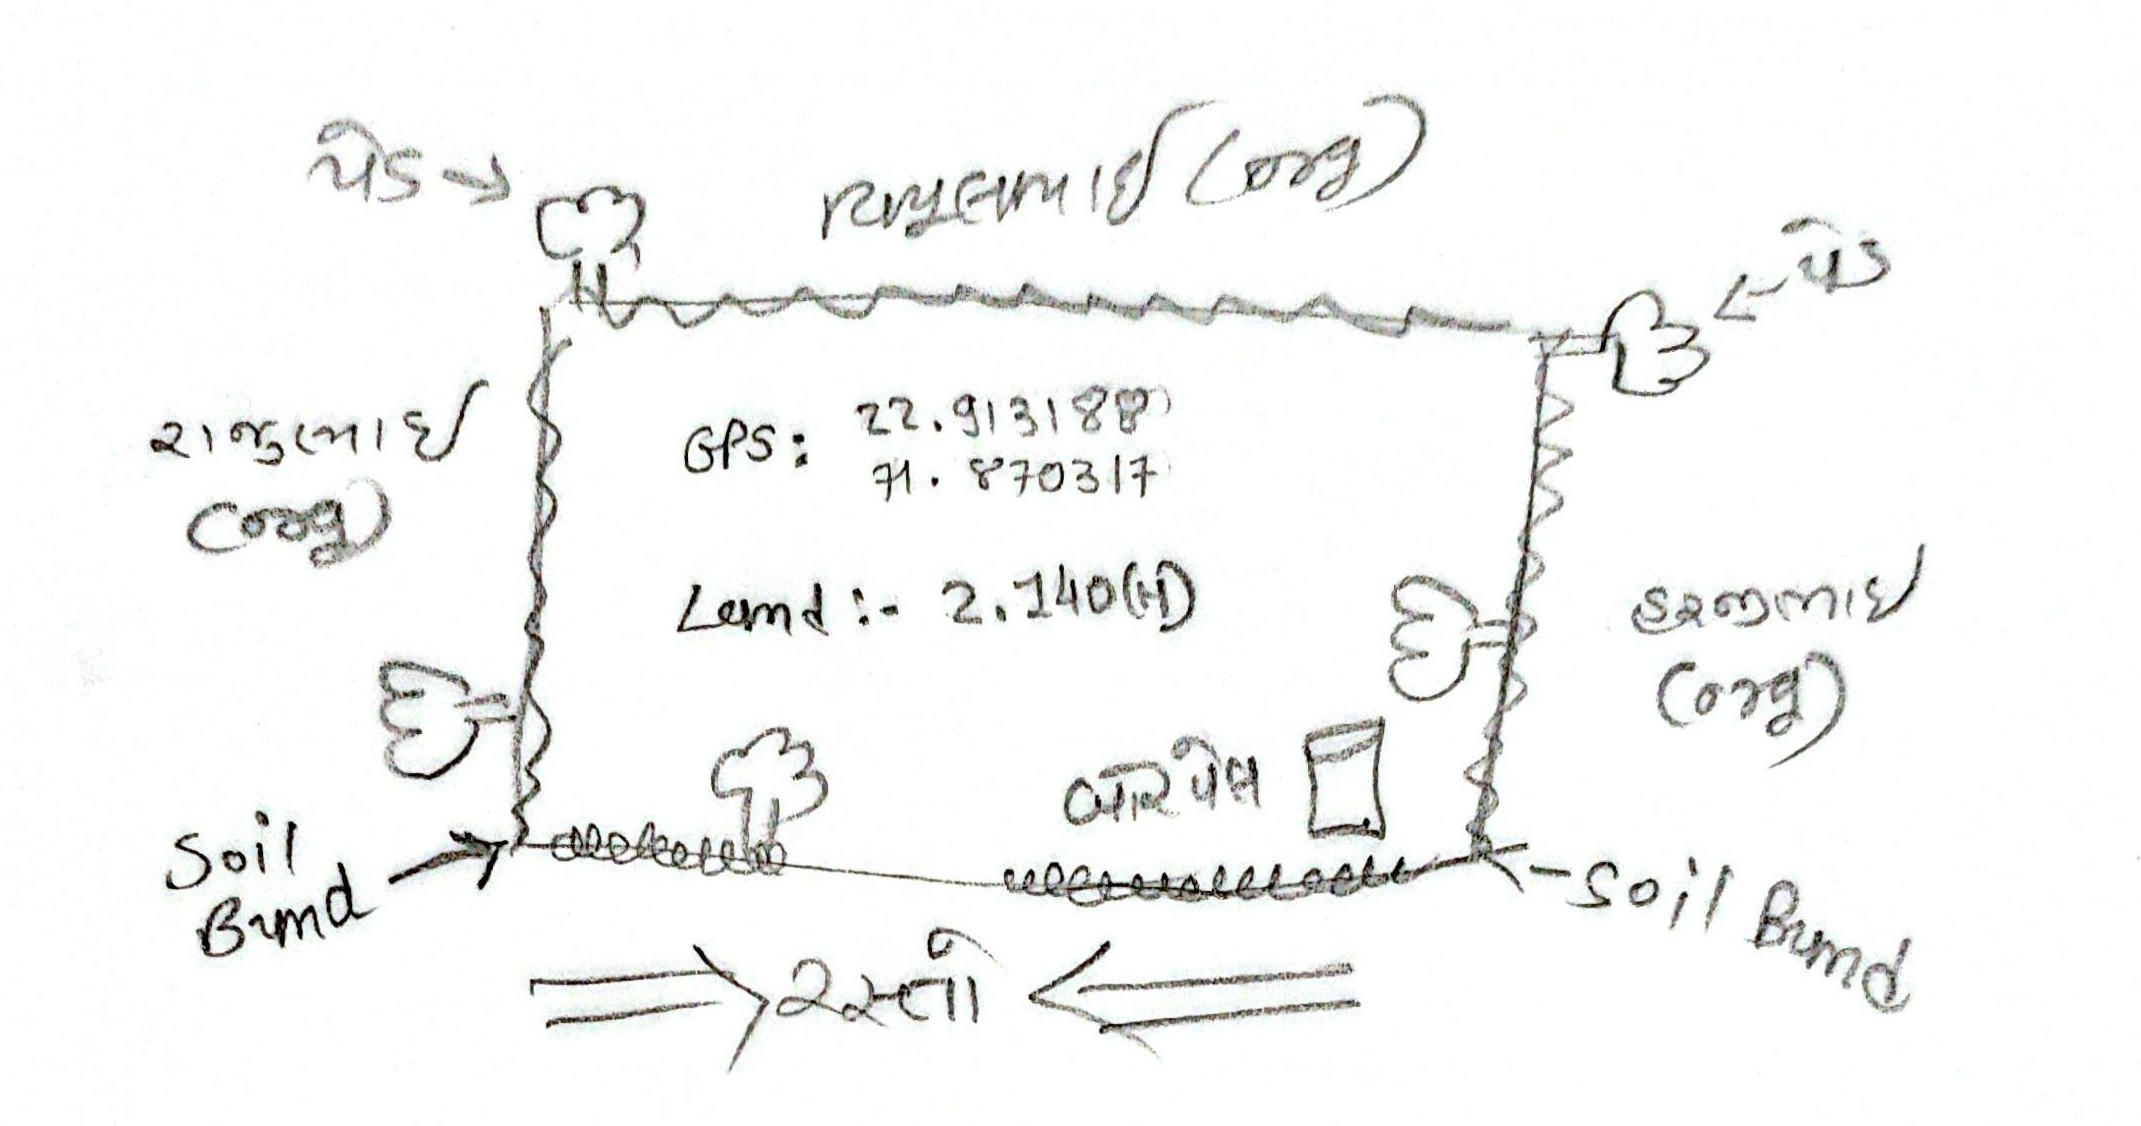 પેડ
(ઓર્ગ)
પેડ
રાજુભાઈ
(ઓર્ગ)
GPS: 22.913188
71.870317
Land :- 2.140(H)
હરજીભાઈ
(ઓર્ગ)
બોરવેલ
Soil
Bund
Soil Bund
રસ્તો